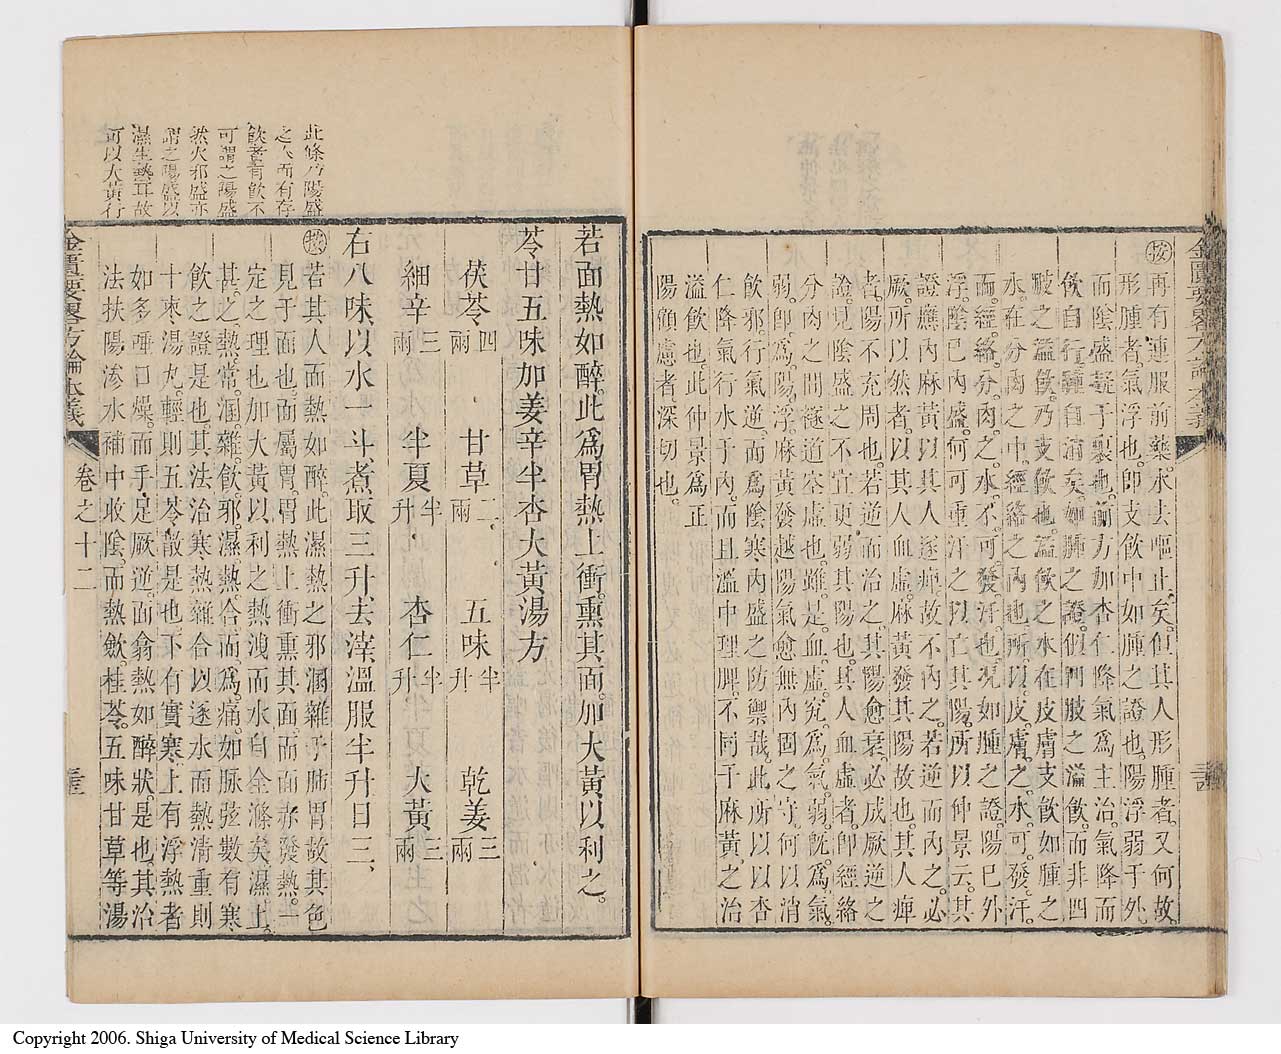 金匱要畧方論本義
三十四
按再有連服前藥水去嘔止矣但其人形腫者又何故
形腫者氣浮也即支飲中如腫之證也陽浮弱于外
而陰盛凝于裏也前方加杏仁降氣爲主治氣降而
飲自行腫自消矣如腫之證似同肢之溢飲而非四
肢之溢飲乃支飲也溢飲之水在皮膚支飲如腫之
水在分肉之中經絡之內也所以皮膚之水可發汗
而經絡分肉之水不可發汗也况如腫之證陽已外
浮陰已內盛何可重汗之以亡其陽所以仲景云其
證應內麻黃以其人遂痺故不內之若逆而內之必
厥所以然者以其人血虛麻黃發其陽故也其人痺
者陽不充周也若逆而治之其陽愈衰必成厥逆之
證見陰盛之不宜更弱其陽也其人血虛者即經絡
分肉之間襚道空虛也雖是血虛究爲氣弱旣爲氣
弱即爲陽浮麻黃發越陽氣愈無內固之守何以消
飲邪行氣逆而爲陰寒內盛之防禦哉此所以以杏
仁降氣行水于內而且溫中理脾不同于麻黃之治
溢飲也此仲景爲正
陽顧慮者深切也
若面熱如醉此爲胃熱上衝熏其面加大黃以利之
苓甘五味加姜辛半杏大黃湯方
茯苓四兩 甘草二兩 五味半升 乾姜三兩
細辛三兩 半夏半升 杏仁半升 大黃三兩
右八味以水一斗煮取三升去滓溫服半升日三
此條乃陽盛
之人而有存
飲者有飲不
可謂之陽盛
然火邪盛亦
謂之陽盛以
濕生熱耳故
可以大黃行
按若其人而熱如醉此濕熱之邪溷雜于肺胃故其色
見于面也面屬胃胃熱上衝熏其面而面赤發熱一
定之理也加大黃以利之熱洩而水自全滌矣濕上
甚之熱常溷雜飲邪濕熱合而爲痛如脈弦數有寒
飲之證是也其法治寒熱雜合以逐水而熱清重則
十枣湯丸輕則五苓散是也下有實寒上有浮熱者
如多唾口燥而手足厥逆面翕熱如醉狀是也其治
法扶陽滲水補中收陰而熱歛桂苓五味甘草等湯
金匱要畧方論本義
卷之十二
三十五
Copyright 2006. Shiga University of Medical Science Library